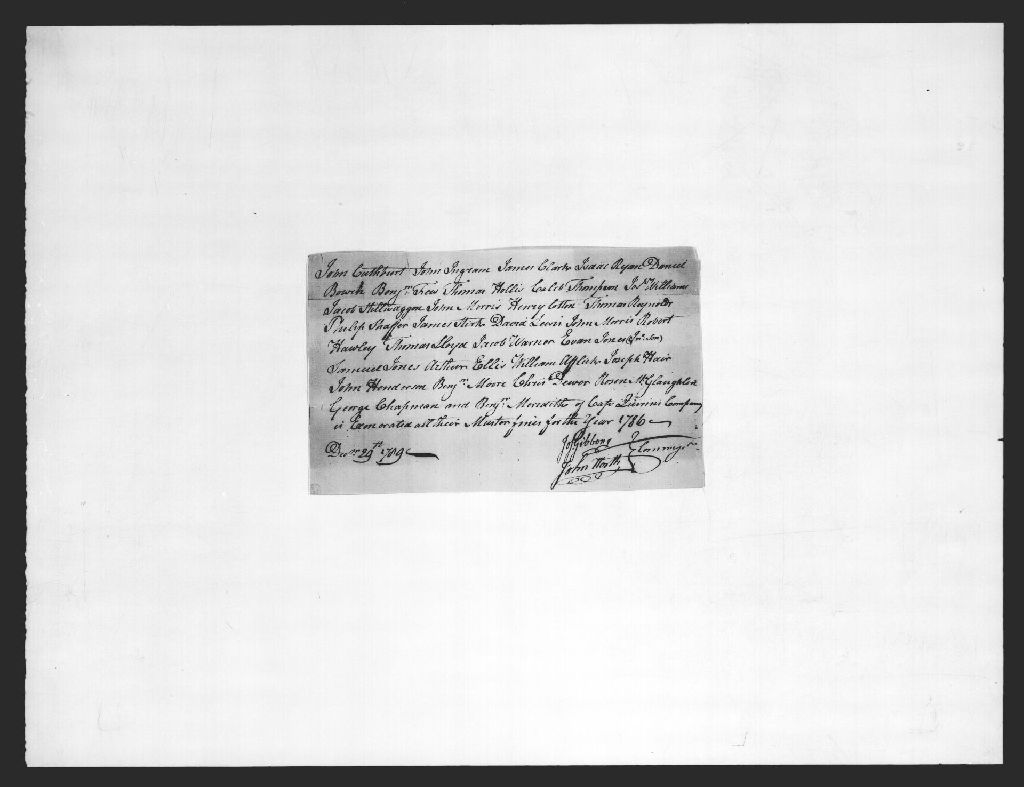 John Cuthburt John Ingram James Clark Isaac Regan Daniel
Bowen Benjn Thomas Hollis Caleb Thompson Williams
Jacob Stillwaggon John Morris Henry Cotton Thomas Reynolds
Philip Shaffer James Stirk David Lewis John Morris Robert
Hawley Thomas Lloyd Jacob Warner Evan Jones
Samuel Jones Arthur Ellis William Afflick Joseph Hair
John Henderson Benjn Moore Chris Dewer McGlaughlin
George Chapman and Benjn Meredith of Capt Company
is Exonorated all their Muster fines for the Year 1786
Decmr 29th 1789
Jos Gibbons
John North